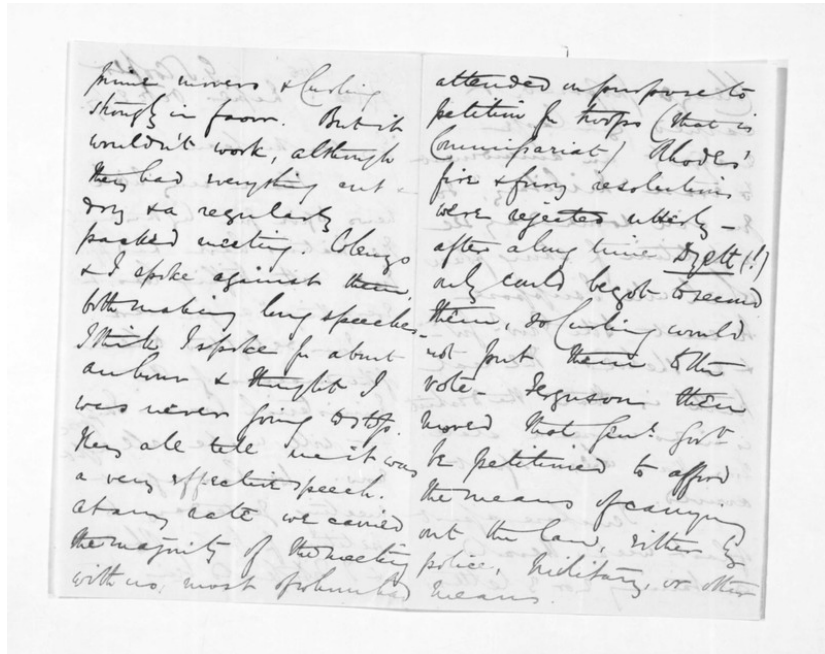 prime movers & Curling
strongly in favor. But it
wouldn't work, although
they had everything cut &
dry & a regularly
packed meeting. Colenso
& I spoke against them,
both making long speeches.
I think I spoke for about
an hour & thought I
was never going to stop.
They all tell me it was
a very effective speech.
At any rate we carried
the majority of the meeting
with us, most of whom had
attended on purpose to
petition for troops (that is
Commissariat) Rhodes'
fire & fury resolutions
were rejected utterly -
after a long time Dyett (!)
only could be got to second
them, so Curling would
not put them to the
vote - Ferguson then
moved that Genl. Govt
be petitioned to afford
the means of carrying
out the law, either by
police, military, or other
means.